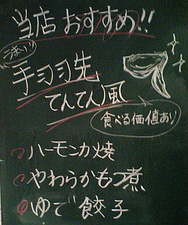 当店おすすめ!!
手羽先
てんてん風
食べる価値あり
ハーモンカ焼
やわらかもつ煮
ゆで餃子